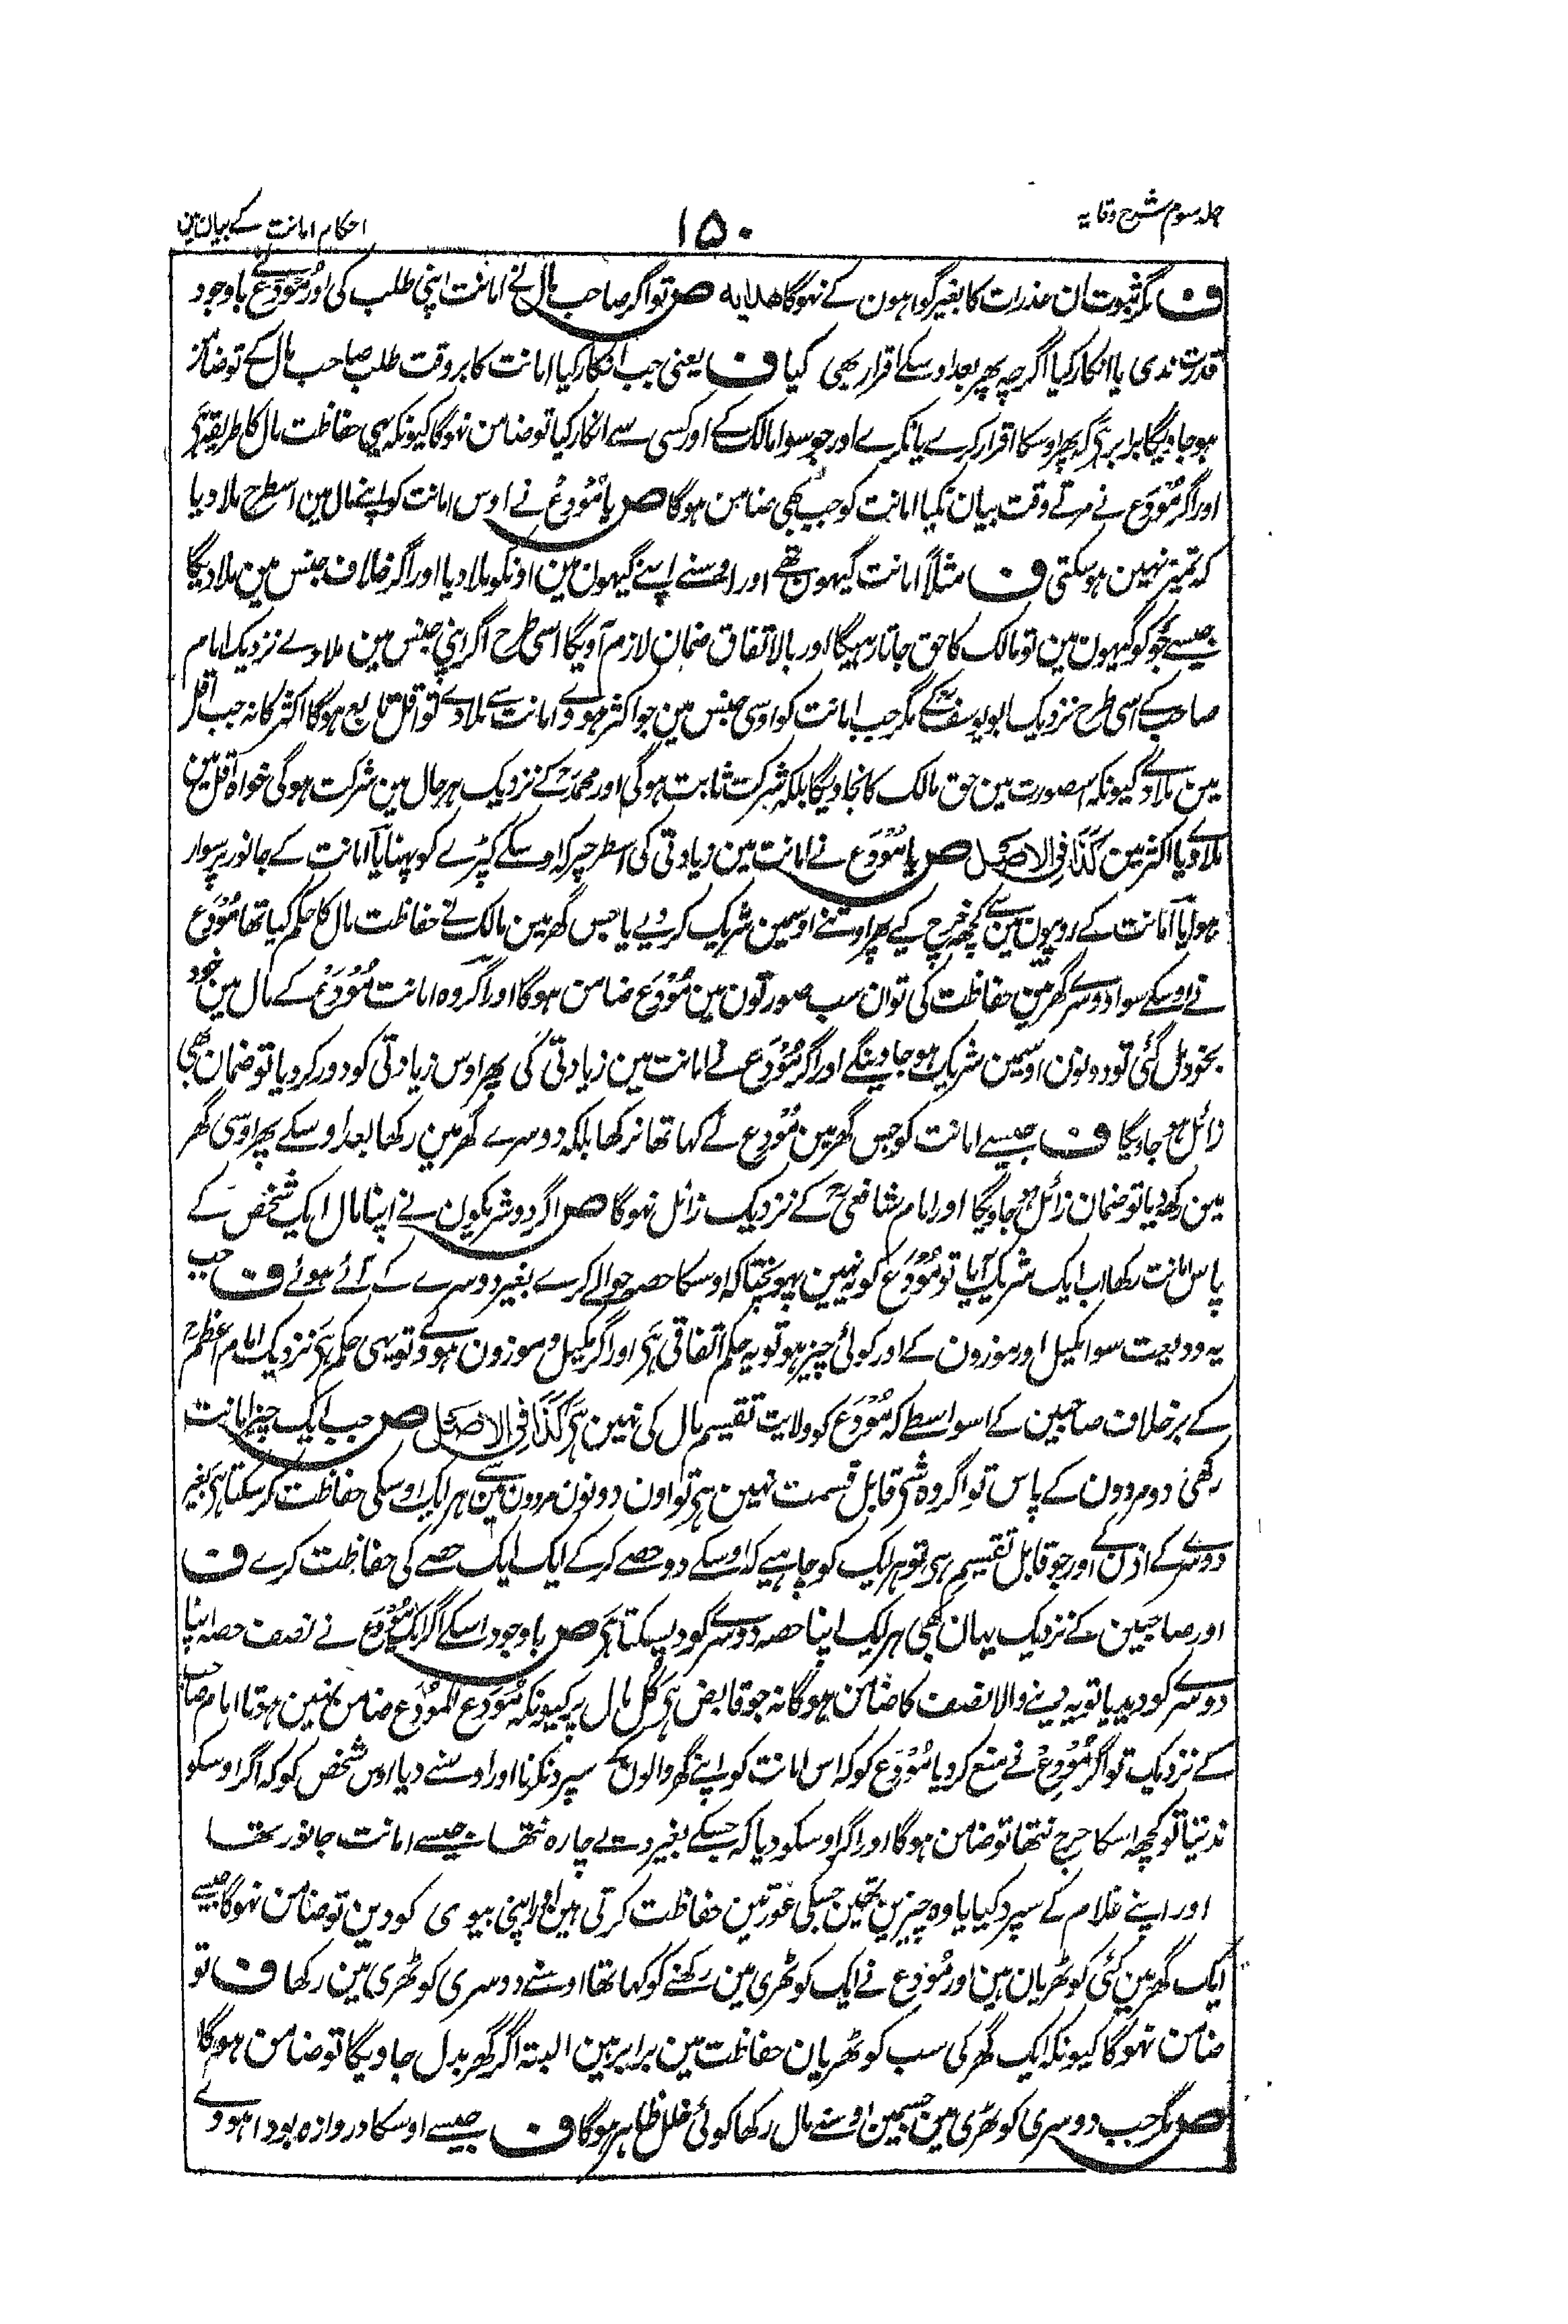 جلد سوم شرح وقایہ
۱۵۰
احکام امانت کے بیان مین
ف مگر ثبوت ان عذرات کا بغیر گواہون کے نہوگا ھدایہ ص تو اگر صاحب مال نے امانت اپنی طلب کی اور مُوْدَع نے باوجود
قدرت ندی یا انکار کیا اگرچہ پھر بعد اوسکے اقرار بھی کیا ف یعنی جب انکار کیا امانت کا بروقت طلب صاحب مال کے تو ضامن
ہو جاویگا برابر ہی کہ پھر اوسکا اقرار کرے یا نکرے اور جو سوا مالک کے اور کسی سے انکار کیا تو ضامن نہوگا کیونکہ یہی حفاظت مال کا طریقہ ہی
اور اگر مُوْدَع نے مرتے وقت بیان نکیا امانت کو جب بھی ضامن ہوگا ص یا مُوْدَع نے اوس امانت کو اپنے مال مین اسطرح ملا دیا
کہ تمیز نہین ہو سکتی ف مثلاً امانت گیہون تھے اور اوسنے اپنے گیہون مین اونکو ملا دیا اور اگر خلاف جنس مین ملا دیگا
جیسے جَو کو گیہون مین تو مالک کا حق جاتا رہیگا اور بالاتفاق ضمان لازم آویگا اسی طرح اگر اپنی جنس مین ملا دے نزدیک امام
صاحب کے اسی طرح نزدیک ابو یوسف کے مگر جب امانت کو اوسی جنس مین جو اکثر ہووے امانت سے ملا دے تو اقل تابع ہوگا اکثر کا نہ جب اقل
مین ملا دے کیونکہ اسصورت مین حق مالک کا نجاویگا بلکہ شرکت ثابت ہوگی اور محمد کے نزدیک ہر حال مین شرکت ہوگی خواہ اقل مین
ملا دے یا اکثر مین کَذَا فِی الاَصْل ص یا مُوْدَع نے امانت مین زیادتی کی اسطرحپر کہ اوسکے کپڑے کو پہنا یا امانت کے جانور پر سوار
ہوا یا امانت کے روپیون مین سے کچھ خرچ کیے پھر اوتنے اوسمین شریک کر دیے یا جس گھر مین مالک نے حفاظت مال کا حکم کیا تھا مُوْدَع
نے اوسکے سوا دوسرے گھر مین حفاظت کی تو ان سب صورتون مین مُوْدَع ضامن ہوگا اور اگر وہ امانت مُوْدَع کے مال مین خود
بخود مل گئی تو دونون اوسمین شریک ہو جاوینگے اور اگر مُوْدَع نے امانت مین زیادتی کی پھر اوس زیادتی کو دور کر دیا تو ضمان بھی
زائل ہو جاویگا ف جیسے امانت کو جس گھر مین مُوْدِع نے کہا تھا نرکھا بلکہ دوسرے گھر مین رکھا بعد اوسکے پھر اوسی گھر
مین رکھدیا تو ضمان زائل ہو جاویگا اور امام شافعی کے نزدیک زائل نہوگا ص اگر دو شریکون نے اپنا مال ایک شخص کے
پاس امانت رکھا اب ایک شریک آیا تو مُوْدَع کو یہ نہین پہونچتا کہ اوسکا حصہ حوالے کرے بغیر دوسرے کے آئے ہوئے ف جب
یہ ودیعت سوا مکیل اور موزون کے اور کوئی چیز ہو تو یہ حکم اتفاقی ہی اور اگر مکیل و موزون ہووے تو یہی حکم ہی نزدیک امام اعظم
کے برخلاف صاحبین کے اسواسطے کہ مُوْدَع کو ولایت تقسیم مال کی نہین ہی کَذَا فِی الاَصْل ص جب ایک چیز امانت
رکھی دو مردون کے پاس تو اگر وہ شی قابل قسمت نہین ہی تو اون دونون مردون مین سے ہر ایک اوسکی حفاظت کر سکتا ہی بغیر
دوسرے کے اذن کے اور جو قابل تقسیم ہی تو ہر ایک کو چاہیے کہ اوسکے دو حصے کر کے ایک ایک حصے کی حفاظت کرے ف
اور صاحبین کے نزدیک یہان بھی ہر ایک اپنا حصہ دوسرے کو دیسکتا ہی ص باوجود اسکے اگر ایک مُوْدَع نے نصف حصہ اپنا
دوسرے کو دیدیا تو یہ دینے والا نصف کا ضامن ہوگا نہ جو قابض ہی کُل مال پر کیونکہ مُوْدَع المُوْدَع ضامن نہین ہوتا امام صاحب
کے نزدیک تو اگر مُوْدِع نے منع کر دیا مُوْدَع کو کہ اس امانت کو اپنے گھر والون کے سپرد نکرنا اور اوسنے دیا اوس شخص کو کہ اگر اوسکو
ندیتا تو کچھ اسکا حرج نتھا تو ضامن ہوگا اور اگر اوسکو دیا کہ جسکے بغیر دے چارہ نتھا جیسے امانت جانور تھا
اور اپنے غلام کے سپرد کیا یا وہ چیزین تھین جسکی عورتین حفاظت کرتی ہین اور اپنی بیوی کو دین تو ضامن نہوگا جیسے
ایک گھر مین کئی کوٹھریان ہین اور مُوْدِع نے ایک کوٹھری مین رکھنے کو کہا تھا اوسنے دوسری کوٹھری مین رکھا ف تو
ضامن نہوگا کیونکہ ایک گھر کی سب کوٹھریان حفاظت مین برابر ہین البتہ اگر گھر بدل جاویگا تو ضامن ہوگا
ص مگر جب دوسری کوٹھری مین جسمین اوسنے مال رکھا کوئی خلل ظاہر ہوگا ف جیسے اوسکا دروازہ بودا ہووے